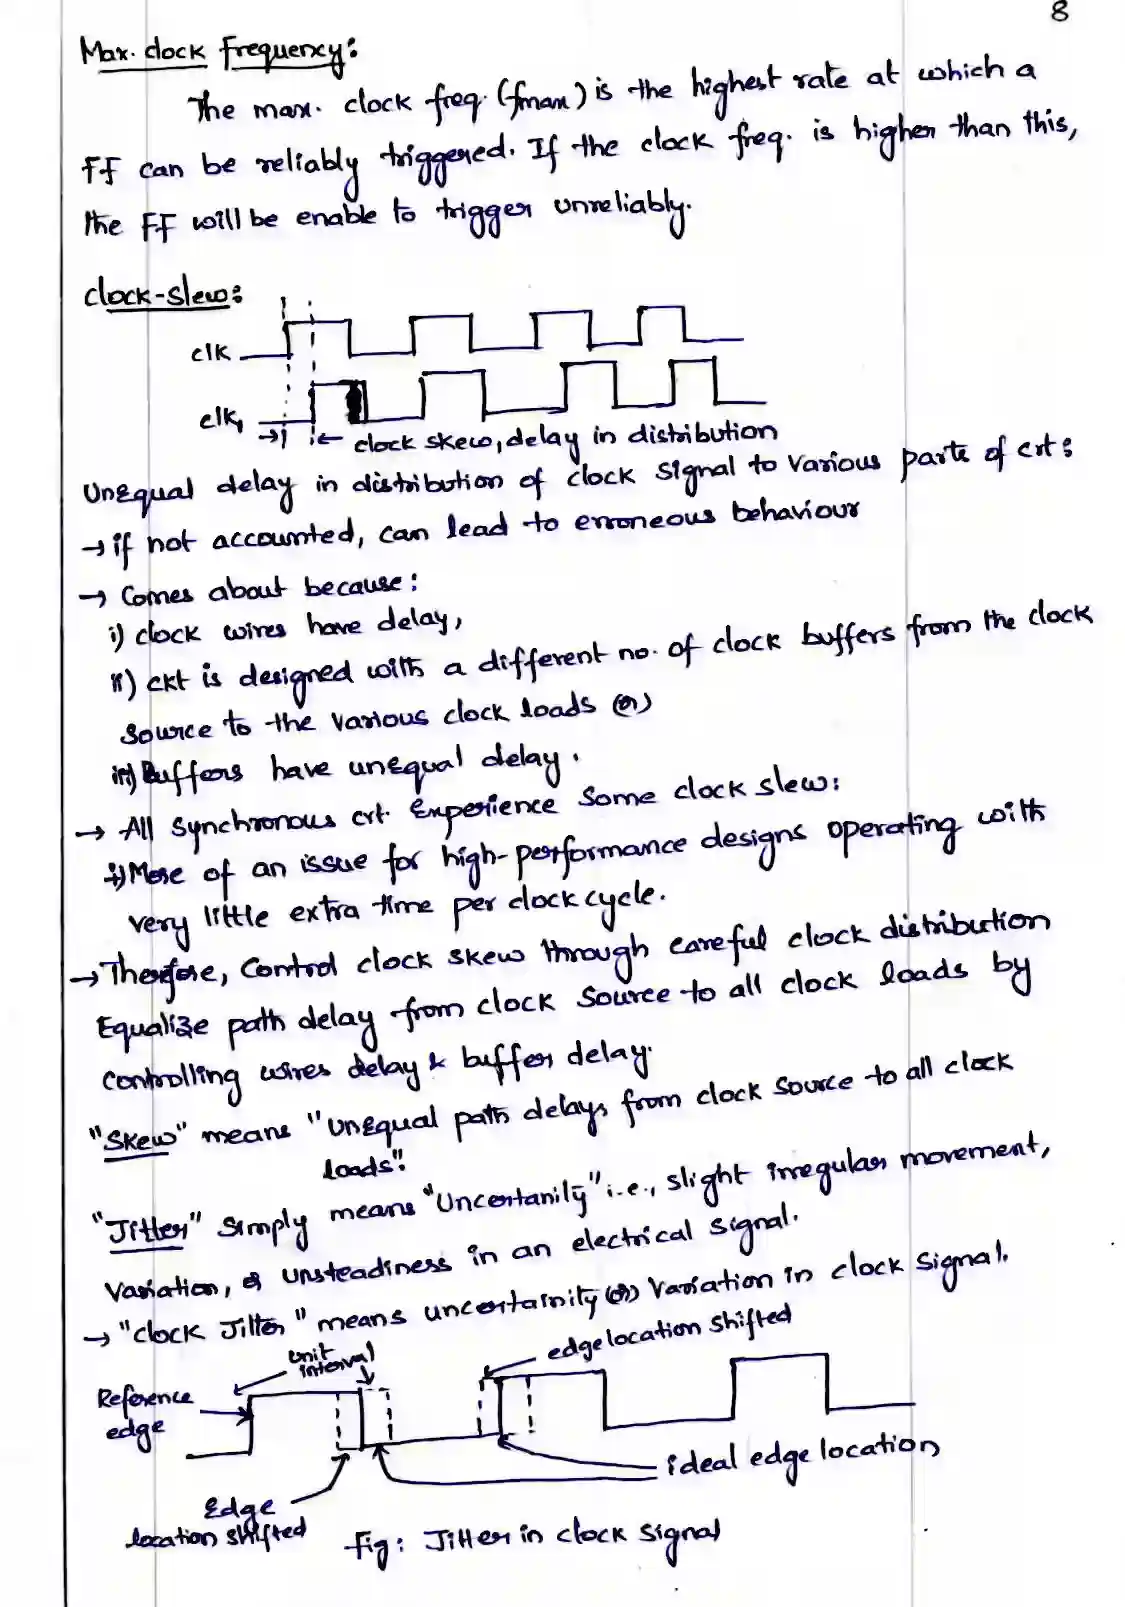 8
Max. clock frequency:
The max. clock freq. (fmax) is the highest rate at which a
FF can be reliably triggered. If the clock freq. is higher than this,
the FF will be enable to trigger unreliably.
clock-slew:
clk
clk1
clock skew, delay in distribution
Unequal delay in distribution of clock signal to various parts of crt:
→ if not accounted, can lead to erroneous behaviour
→ Comes about because:
i) clock wires have delay,
ii) ckt is designed with a different no. of clock buffers from the clock
source to the various clock loads (or)
iii) Buffers have unequal delay.
→ All synchronous crt. Experience some clock slew:
i) More of an issue for high-performance designs operating with
very little extra time per clock cycle.
→ Therefore, control clock skew through careful clock distribution
Equalize path delay from clock source to all clock loads by
controlling wires delay & buffer delay.
"Skew" means "Unequal path delays from clock source to all clock
loads".
"Jitter" simply means "Uncertanity" i.e., slight irregular movement,
variation, or unsteadiness in an electrical signal.
→ "clock Jitter" means uncertainity (or) variation in clock signal.
unit
interval
edge location shifted
Reference
edge
ideal edge location
Edge
location shifted
fig: Jitter in clock signal